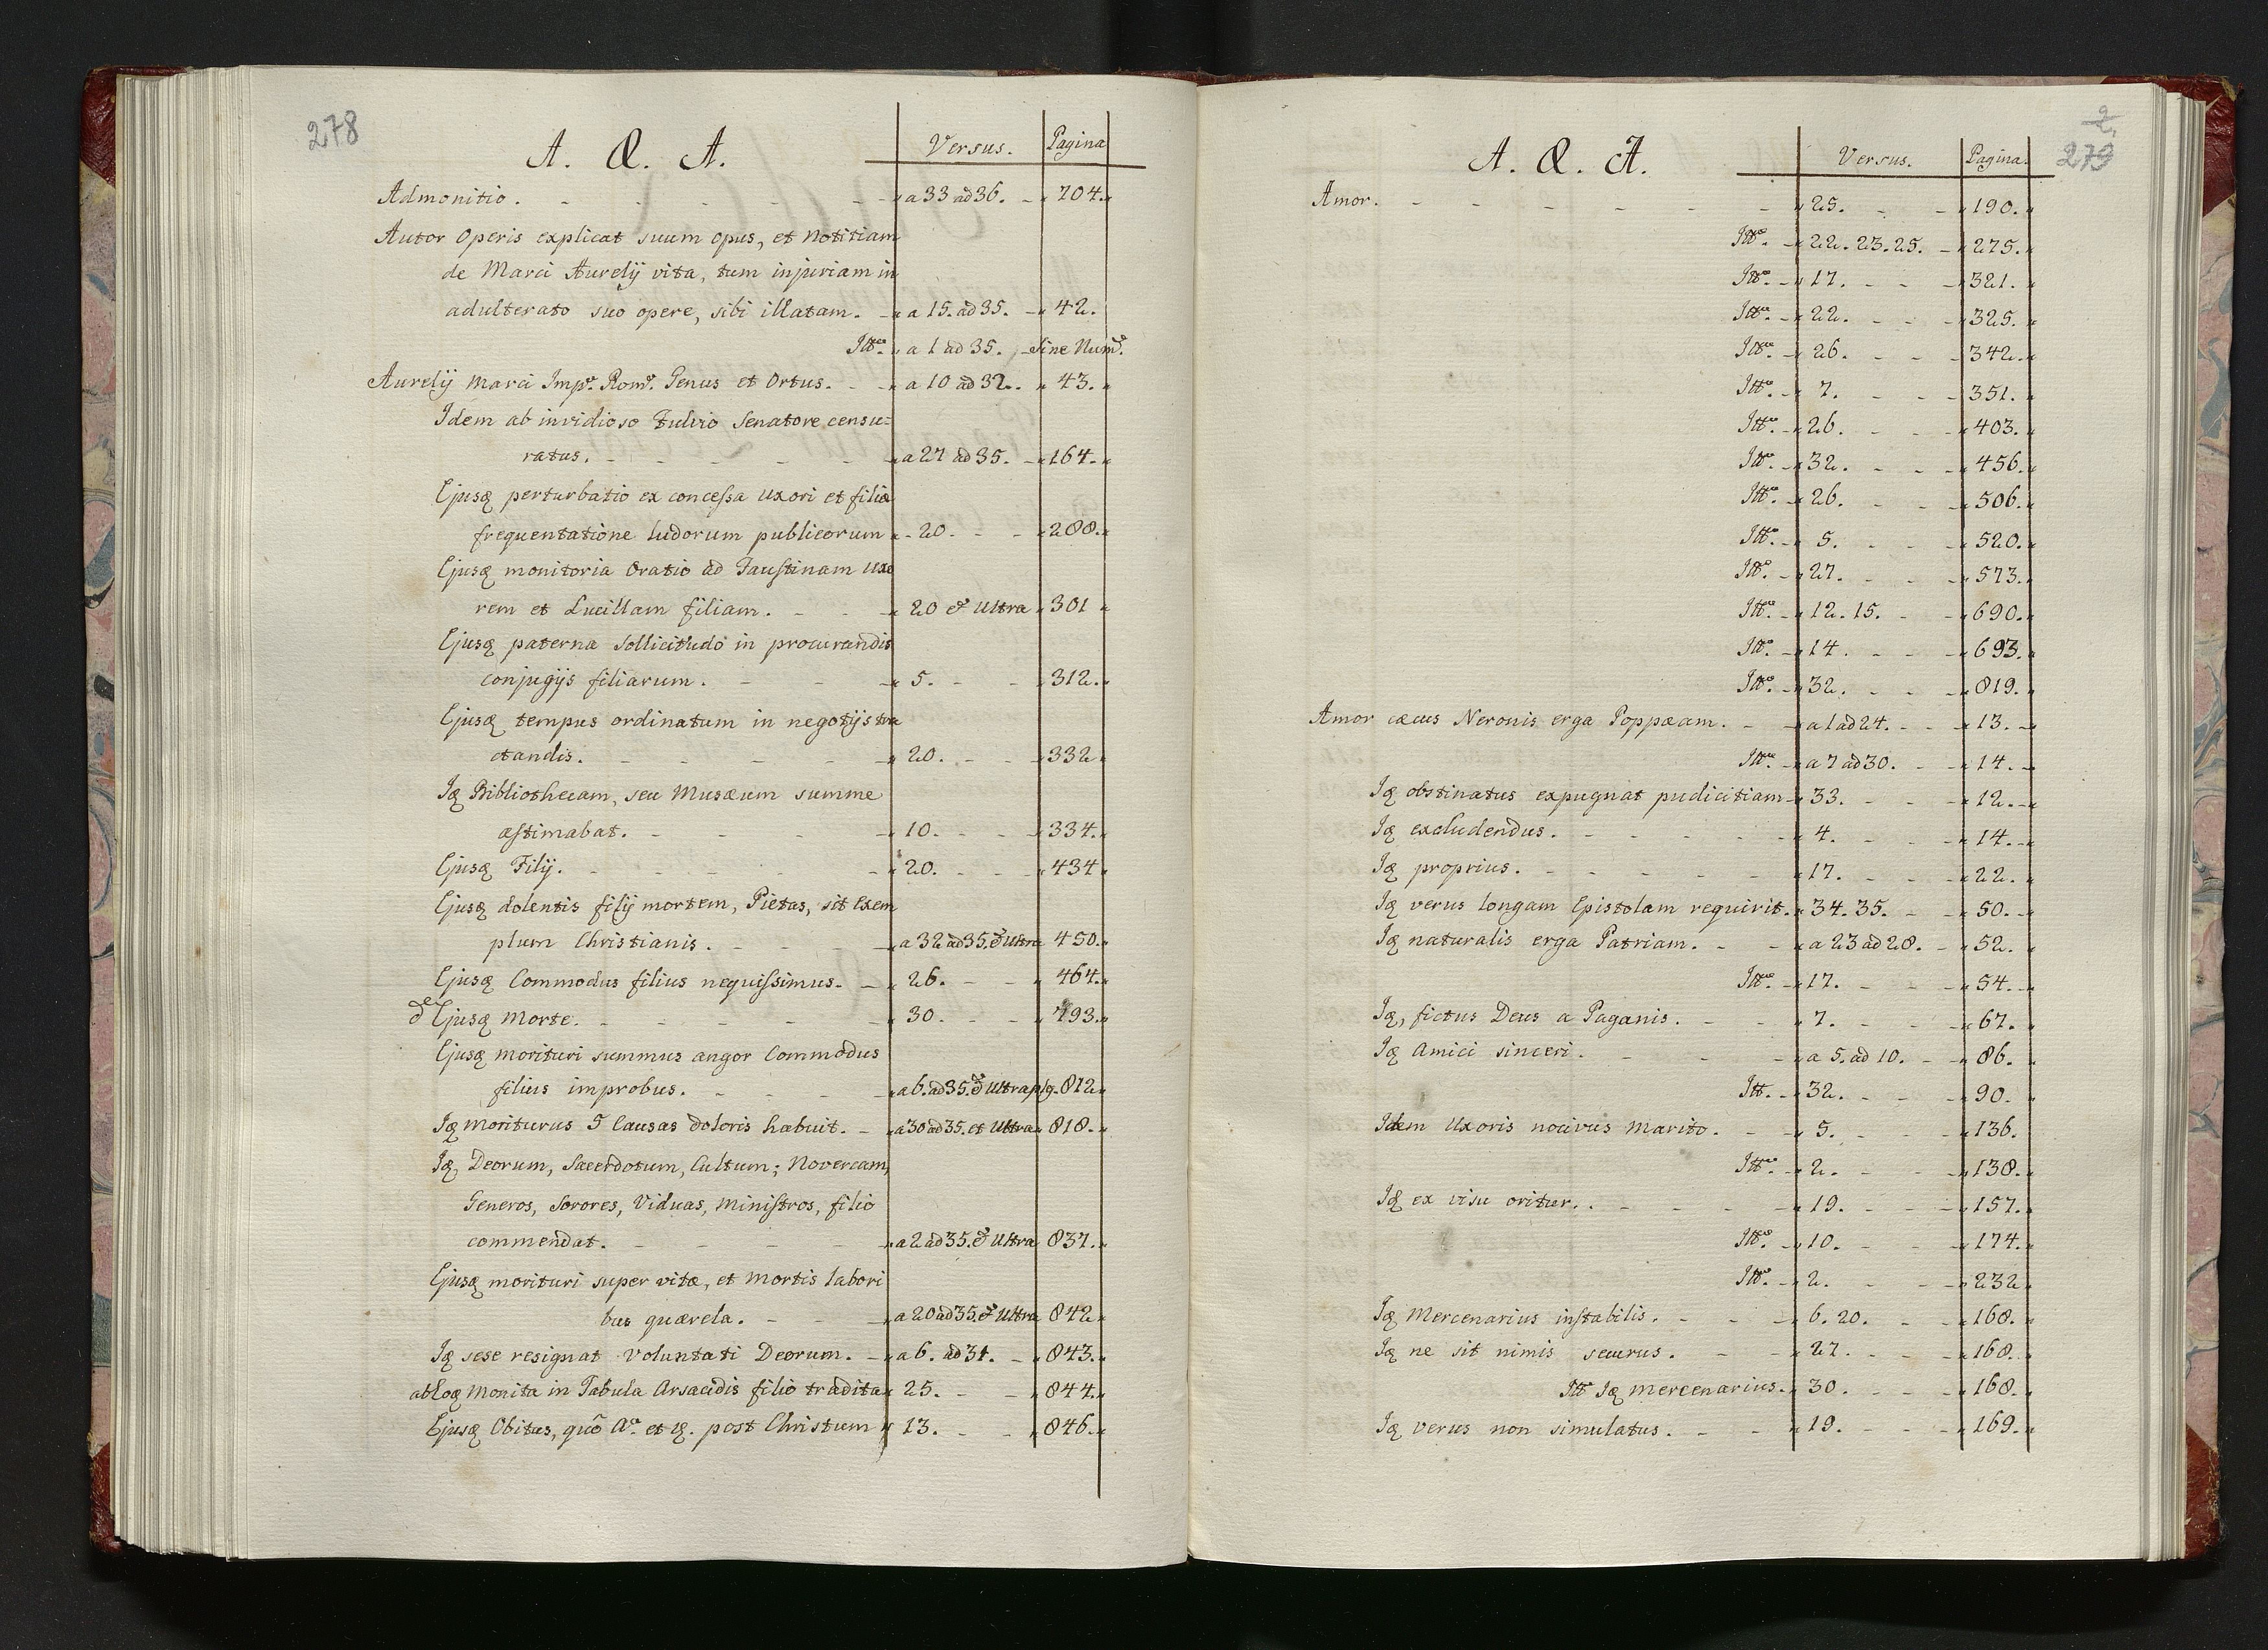 278
A. Æ. A. Versus. Pagina
Admonitio. a 33 ad 36. 704.
Autor Operis explicat suum opus, et Notitiam
de Marci Aurelij vita, tum injuriam in
adulterato suo opere, sibi illatam. a 15. ad 35. 42.
Itt. a 1 ad 35. sine Num.
Aurelij Marci Imp. Rom. Genus et Ortus. a 10 ad 32. 43.
Idem ab invidioso Fulvio Senatore censu=
ratus. a 27 ad 35. 164.
Ejusq perturbatio ex concessa uxori et filiæ
frequentatione ludorum publicorum 20. 288.
Ejusq monitoria Oratio ad Faustinam uxo
rem et Lucillam filiam. 20 & Ultra 301
Ejusq paterna Sollicitudo in procurandis
conjugijs filiarum. 5. 312.
Ejusq tempus ordinatum in negotijs tra
ctandis. 20. 332
Iq Bibliothecam, seu Musæum summe
æstimabat. 10. 334.
Ejusq Filij. 20. 434
Ejusq dolentis filij mortem, Pietas, sit Exem
plum Christianis. a 32 ad 35. & Ultra 450.
Ejusq Commodus filius nequissimus. 26. 464.
de Ejusq Morte. 30. 793.
Ejusq morituri summus angor Commodus
filius improbus. a 6. ad 35. & Ultra pg. 812
Iq moriturus 5 Causas doloris habuit. a 30 ad 35. et Ultra 818.
Iq, Deorum, Sacerdotum, Cultum; Novercam,
Generos, Sorores, Viduas, Ministros, filio
commendat. a 2 ad 35. & Ultra 837.
Ejusq morituri super vitæ, et mortis labori
bus quærela. a 20 ad 35. & Ultra 842
Iq sese resignat voluntati Deorum. a 6. ad 31. 843.
abloq Monita in Tabula Arsacidis filio tradita 25. 844.
Ejusq Obitus, quô Aº. et q. post Christum 13. 846.
2
279
A. Æ. A. Versus. Pagina.
Amor. 25. 190.
Itt. 22. 23. 25. 275.
Itt. 17. 321.
Itt. 22. 325.
Itt. 26. 342.
Itt. 7. 351.
Itt. 26. 403.
Itt. 32. 456.
Itt. 26. 506.
Itt. 5. 520.
Itt. 27. 573.
Itt. 12. 15. 690.
Itt. 14. 693.
Itt. 32. 819.
Amor cæcus Neronis erga Poppæam. a 1 ad 24. 13.
Itt. a 7 ad 30. 14.
Iq obstinatus expugnat pudicitiam 33. 12.
Iq excludendus. 4. 14.
Iq proprius. 17. 22.
Iq verus longam Epistolam requirit. 34. 35. 50.
Iq naturalis erga Patriam. a 23 ad 28. 52.
Itt. 17. 54.
Iq, fictus Deus a Paganis. 7. 67.
Iq Amici sinceri. a 5. ad 10. 86.
Itt. 32. 90.
Idem Uxoris nocivus Marito. 5. 136.
Itt. 2. 138.
Iq ex visu oritur. 19. 157.
Itt. 10. 174.
Itt. 2. 232
Iq Mercenarius instabilis. 6. 20. 168.
Iq ne sit nimis securus. 27. 168.
Itt Iq mercenarius. 30. 168.
Iq verus non simulatus. 19. 169.